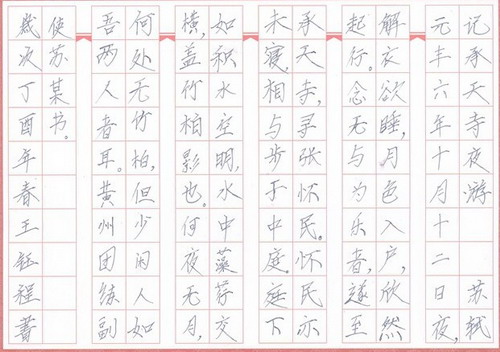 记承天寺夜游 苏轼
元丰六年十月十二日夜，
解衣欲睡，月色入户，欣然
起行。念无与为乐者，遂至
承天寺，寻张怀民。怀民亦
未寝，相与步于中庭。庭下
如积水空明，水中藻荇交
横，盖竹柏影也。何夜无月，
何处无竹柏，但少闲人如
吾两人者耳。黄州团练副
使苏某书。
歲次丁酉年春王钰程